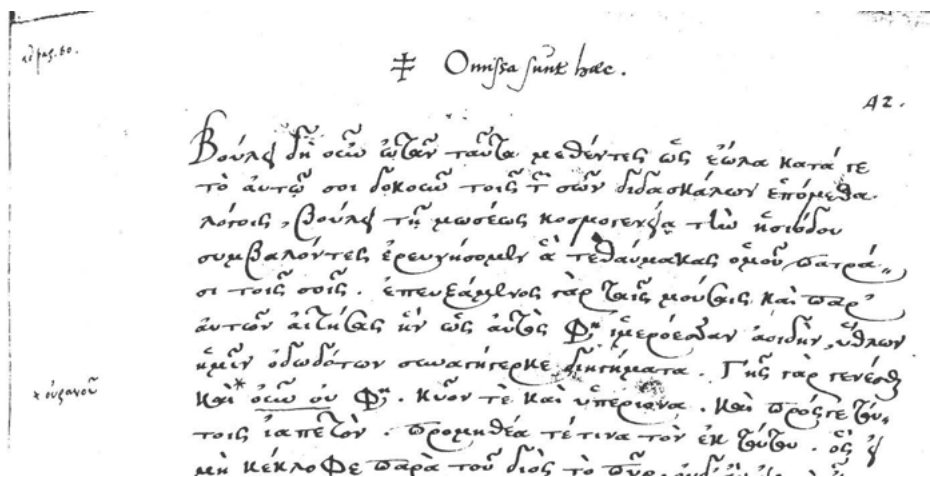 ‡ Omissa sunt haec.
42.
Βούλει δὴ οὖν ὦ τᾶν ταῦτα μεθέντες ὡς ἕωλα κατά γε
τὸ αὐτῷ σοι δοκοῦν τοῖς τῶν σῶν διδασκάλων ἑπόμεθα
λόγοις, βούλει τῇ μωσέως κοσμογενείᾳ τὴν ἡσιόδου
συμβαλόντες ἐρευνήσομεν ἃ τεθαύμακας ὁμοῦ πατρά„
σι τοῖς σοῖς. ἐπευξάμενος γὰρ ταῖς μούσαις καὶ παρ'
αὐτῶν αἰτήσας ἣν ὡς αὐτὸς φησιν ἱμερόεσσαν ἀοιδὴν, ὕθλων
ἡμῖν ὀδωδότων συναγήγερκε διηγήματα. Γῆς γὰρ γενέσθαι
καὶ* οὖν οὐ φησι. κῖον τὲ καὶ ὑπερίονα. καὶ πρός γε τού„
τοις ἰαπετὸν. προμηθέα τέ τινα τὸν ἐκ τούτου. ὃς εἰ
μὴ κέκλοφε παρὰ τοῦ διὸς τὸ πῦρ.
× οὐρανοῦ